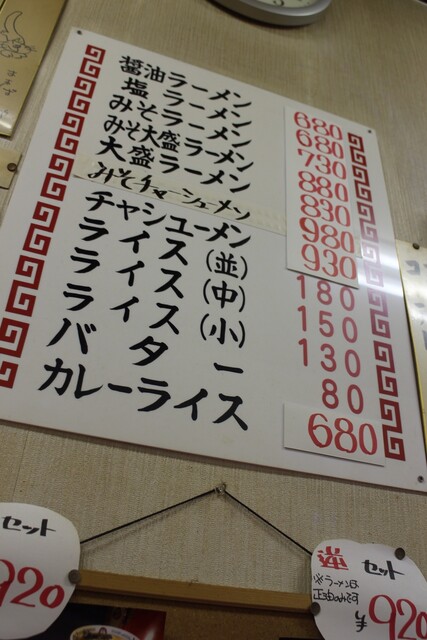 醤油ラーメン 680
塩ラーメン 680
みそラーメン 730
みそ大盛ラーメン 880
大盛ラーメン 830
みそチャーシューメン 980
チャシューメン 930
ライス(並) 180
ライス(中) 150
ライス(小) 130
バター 80
カレーライス 680
セット
920
セット
※ラーメンは
正油のみです
¥920